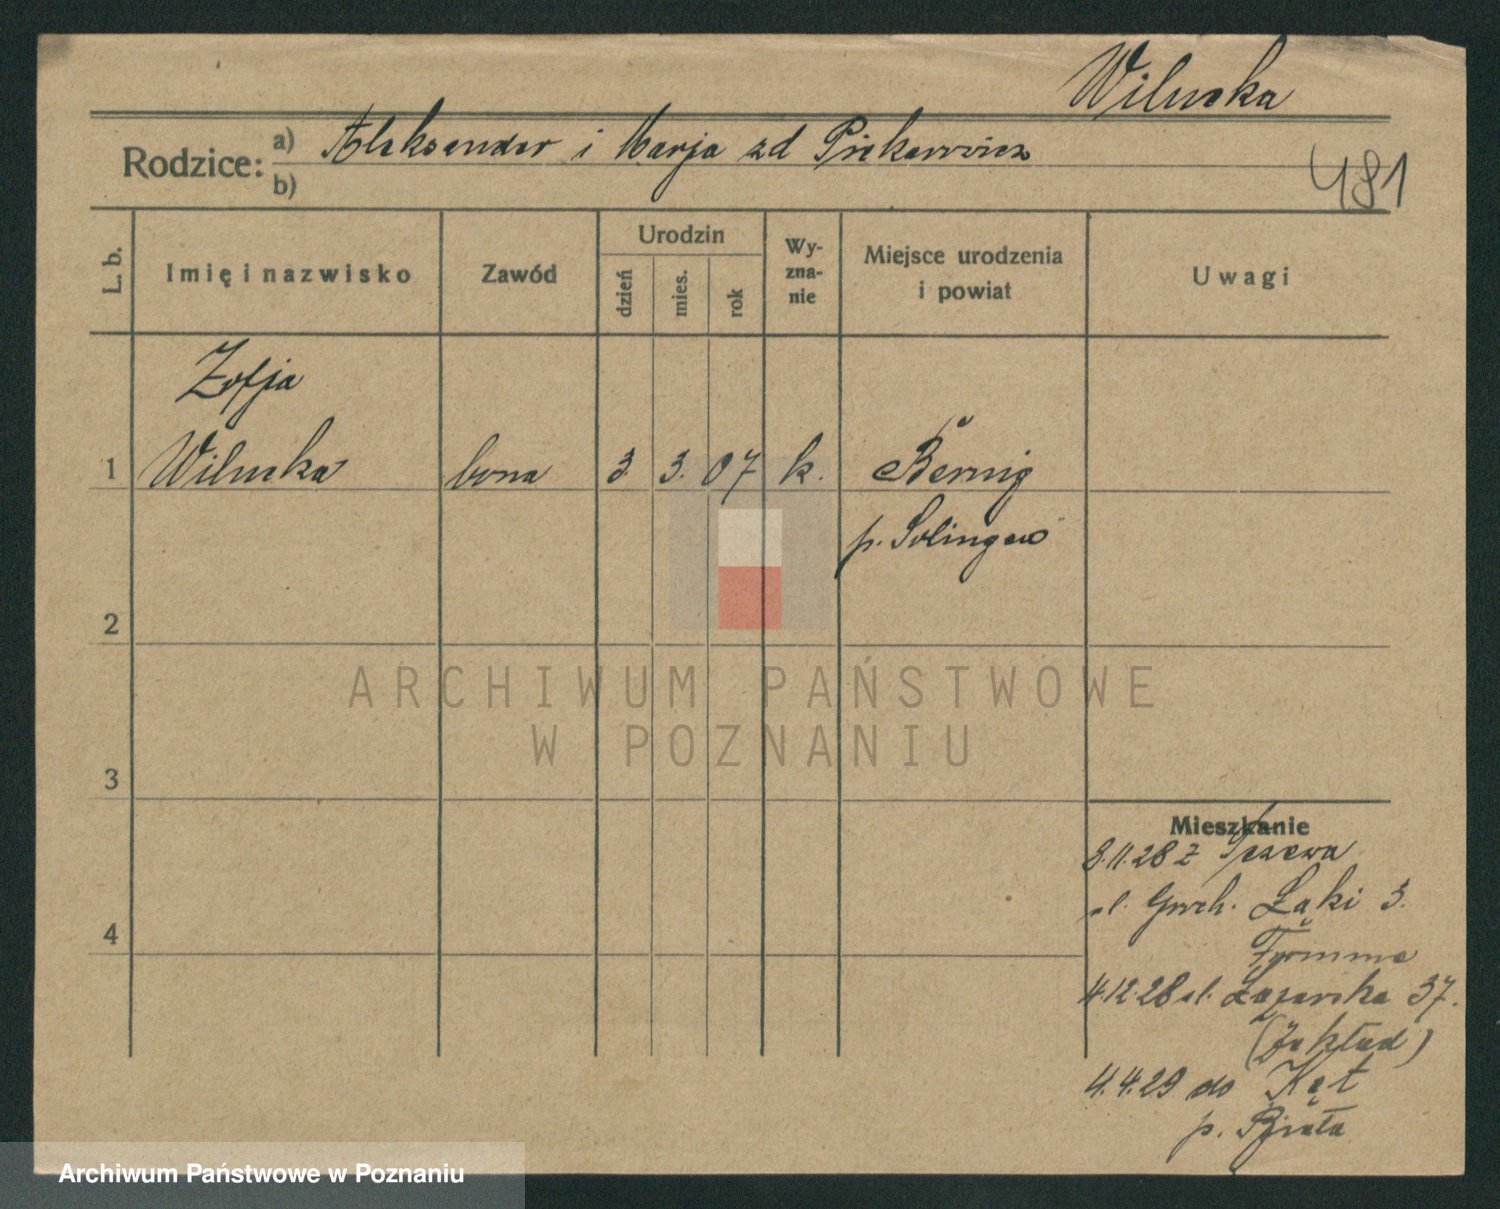 Wilucka
Rodzice: a) Aleksander i Marja zd Piekarowicz
b)
481
L. b.
Imię i nazwisko
Zawód
Urodzin
dzień
mies.
rok
Wy-
zna-
nie
Miejsce urodzenia
i powiat
Uwagi
Zofja
1 Wilucka bona 3. 3. 07 k.
p. Solingen
2
3
4
ARCHIWUM PAŃSTWOWE
W POZNANIU
Mieszkanie
3.11.28 z Tczewa
ul. Groch. Łąki 3.
4.12.28 ul. Łazarska 37.
(Zakład)
4.4.29 do Kęt
p. Biała
Archiwum Państwowe w Poznaniu